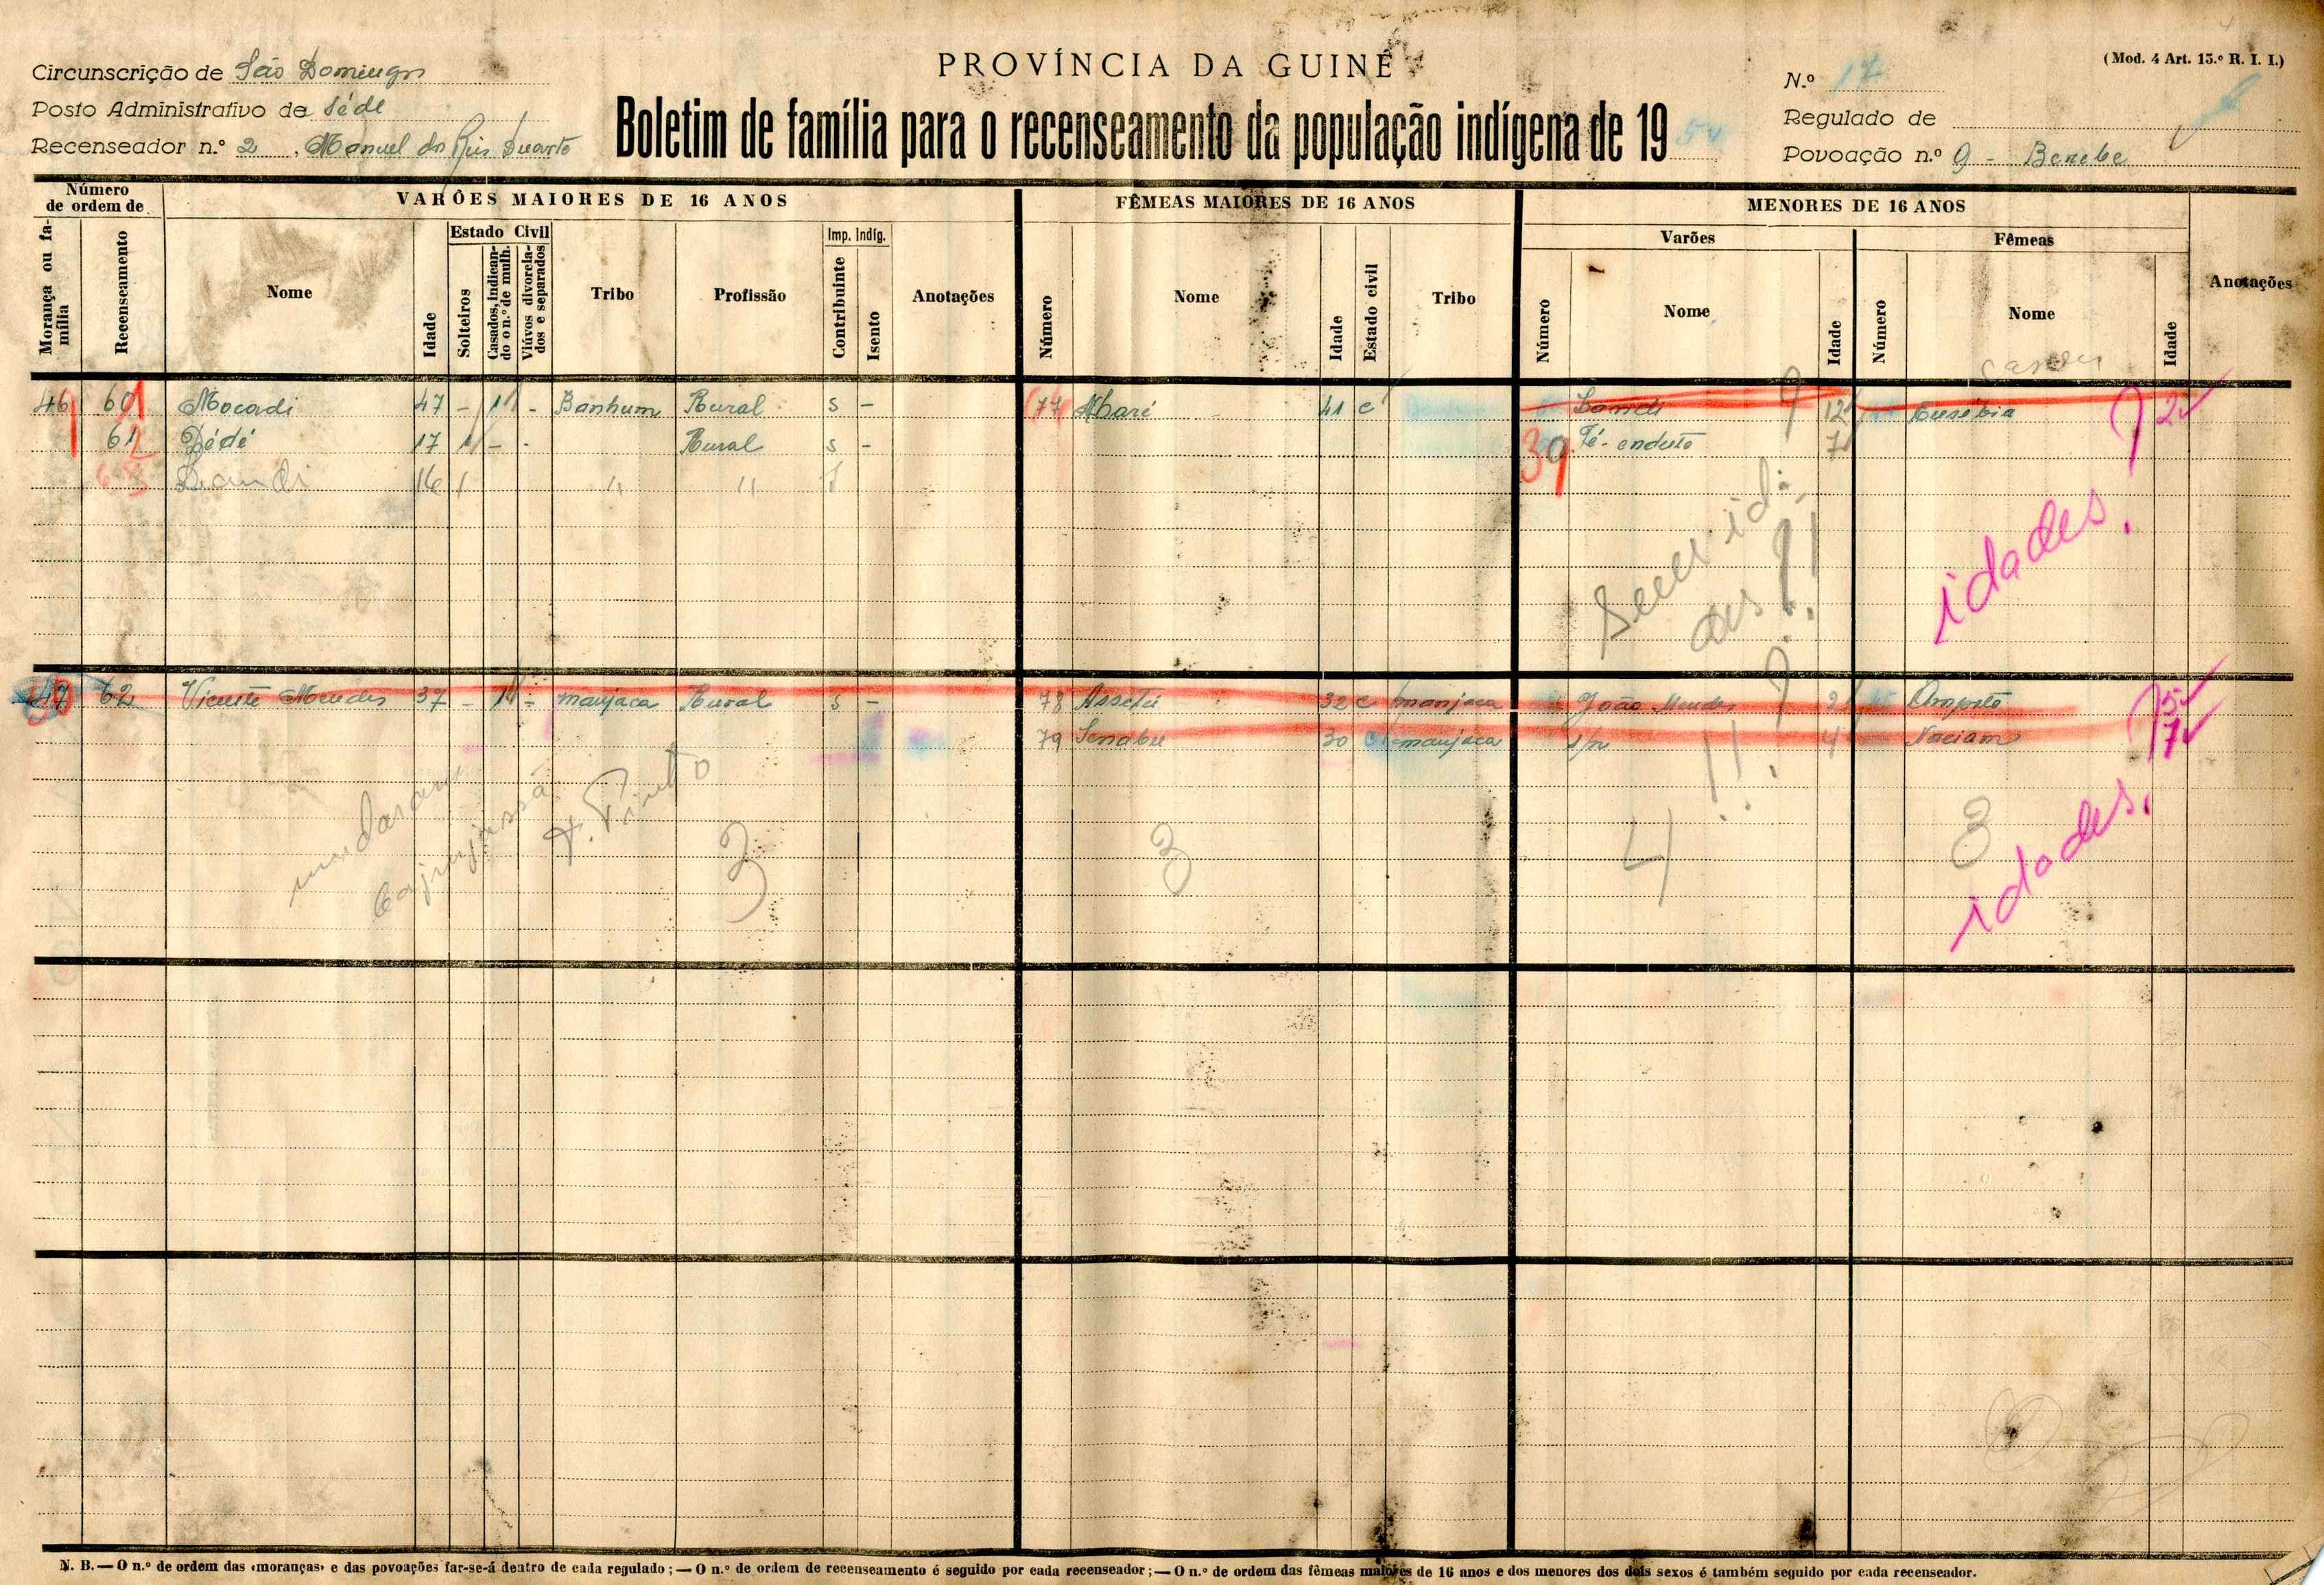 PROVÍNCIA DA GUINÉ
(Mod. 4 Art. 15.º R. I. I.)
Circunscrição de São Domingos
Posto Administrativo de Séde
Recenseador n.º 2, Manuel dos Reis Duarte
Boletim de família para o recenseamento da população indígena de 19
N.º 17
Regulado de
Povoação n.º 9 - Benebe
Número de ordem de
VARÕES MAIORES DE 16 ANOS
FÊMEAS MAIORES DE 16 ANOS
MENORES DE 16 ANOS
Morança ou família
Recenseamento
Nome
Idade
Estado Civil
Solteiros
Casados, indicando o n.º de mulh.
Viúvos divorciados e separados
Tribo
Profissão
Imp. Indíg.
Contribuinte
Isento
Anotações
Número
Nome
Idade
Estado civil
Tribo
Varões
Número
Nome
Idade
Fêmeas
Número
Nome
Idade
Anotações
casou
46 Mocodi 47 - 1 - Banhum Rural s - 77 41 c 12 Eusébia 2
Dédé 17 1 - - Rural s - 39 7
16 1 " " 1
idades.
47 62 Vicente Mendes 37 - 1 - manjaca Rural s - 78 Assetú 32 c manjaca João Mendes 5
79 Senabu 30 c manjaca s/n 4 7
mudaram
P. Pinto
3 3 4 3
idades.
N. B. — O n.º de ordem das «moranças» e das povoações far-se-á dentro de cada regulado; — O n.º de ordem de recenseamento é seguido por cada recenseador; — O n.º de ordem das fêmeas maiores de 16 anos e dos menores dos dois sexos é também seguido por cada recenseador.